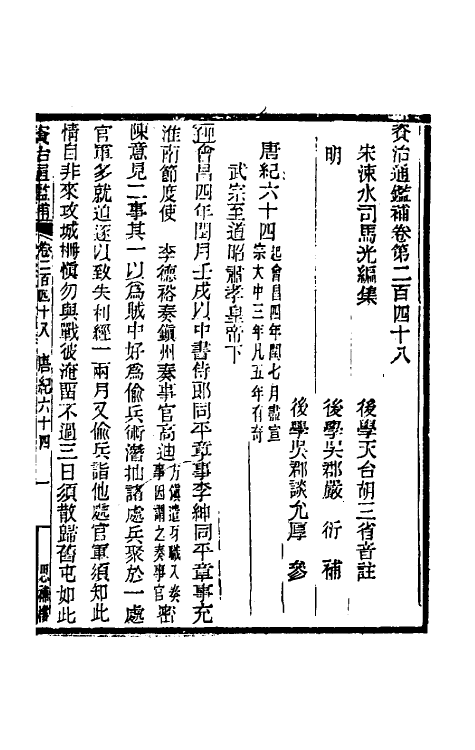 資治通鑑補卷第二百四十八
宋涑水司馬光編集
後學天台胡三省音註
明
後學吳郡嚴衍補
後學吳郡談允厚參
唐紀六十四
起會昌四年閏七月盡宣
宗大中三年凡五年有奇
武宗至道昭肅孝皇帝下
會昌四年閏月壬戌以中書侍郎同平章事李紳同平章事充
淮南節度使 李德裕奏鎮州奏事官高迪
方鎮遣牙職入奏
事因謂之奏事官
密
陳意見二事其一以為賊中好為偷兵術潛抽諸處兵聚於一處
官軍多就迫逐以致失利經一兩月又偷兵詣他處官軍須知此
情自非來攻城柵慎勿與戰彼淹留不過三日須散歸舊屯如此
資治通鑑補
卷二百四十八 唐紀六十四
一
思補樓